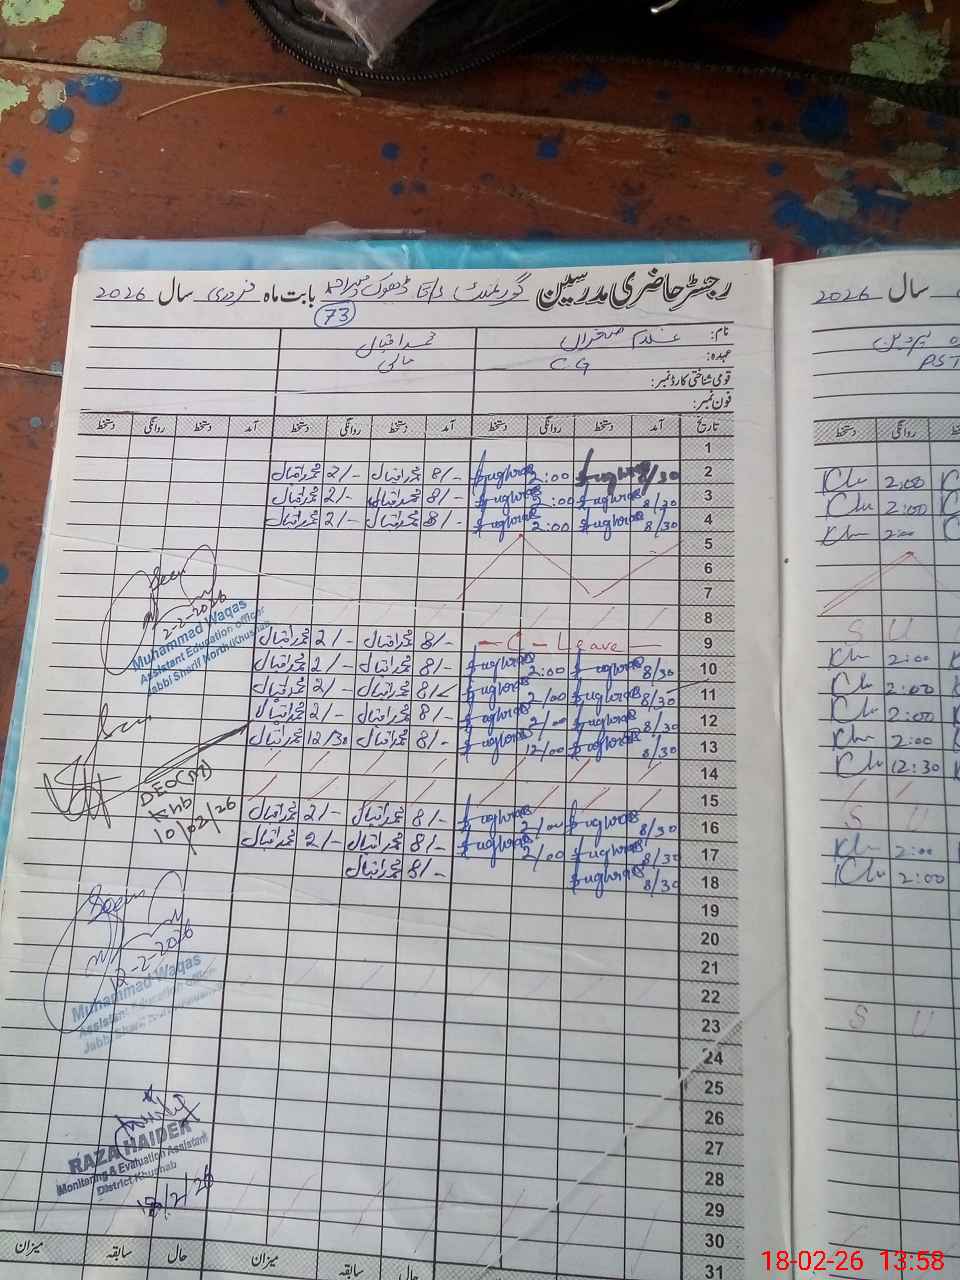 رجسٹر حاضری مدرسین گورنمنٹ بابت ماہ فروری سال 2026
73
نام: غلام صغراں محمد اقبال
عہدہ: C.G مالی
قومی شناختی کارڈ نمبر:
فون نمبر:
تاریخ آمد دستخط روانگی دستخط آمد دستخط روانگی دستخط آمد دستخط روانگی دستخط
1
2 8/30 2:00 8/- محمد اقبال 2/- محمد اقبال
3 8/30 2:00 8/- محمد اقبال 2/- محمد اقبال
4 8/30 2:00 8/- محمد اقبال 2/- محمد اقبال
5
6
7
8
9 - C - Leave - 8/- محمد اقبال 2/- محمد اقبال
10 8/30 2:00 8/- محمد اقبال 2/- محمد اقبال
11 8/30 2/00 8/- محمد اقبال 2/- محمد اقبال
12 8/30 2/00 8/- محمد اقبال 2/- محمد اقبال
13 8/30 12/00 8/- محمد اقبال 12/30 محمد اقبال
14
15
16 8/30 2/00 8/- محمد اقبال 2/- محمد اقبال
17 8/30 2/00 8/- محمد اقبال 2/- محمد اقبال
18 8/30 8/- محمد اقبال
19
20
21
22
23
24
25
26
27
28
29
30
31
میزان سابقہ حال میزان سابقہ حال
2-2-2026
Muhammad Waqas
Assistant Education Officer
Jabbi Sharif North/Khushab
DEO(M)
Khb
10/02/26
12-2-2026
Muhammad Waqas
Assistant Education Officer
Jabbi Sharif
RAZA HAIDER
Monitoring & Evaluation Assistant
District Khushab
18/2/26
سال 2026
PST
روانگی دستخط
2:00
2:00
2:00
S U
2:00
2:00
2:00
2:00
12:30
S U
2:00
2:00
S U
18-02-26 13:58